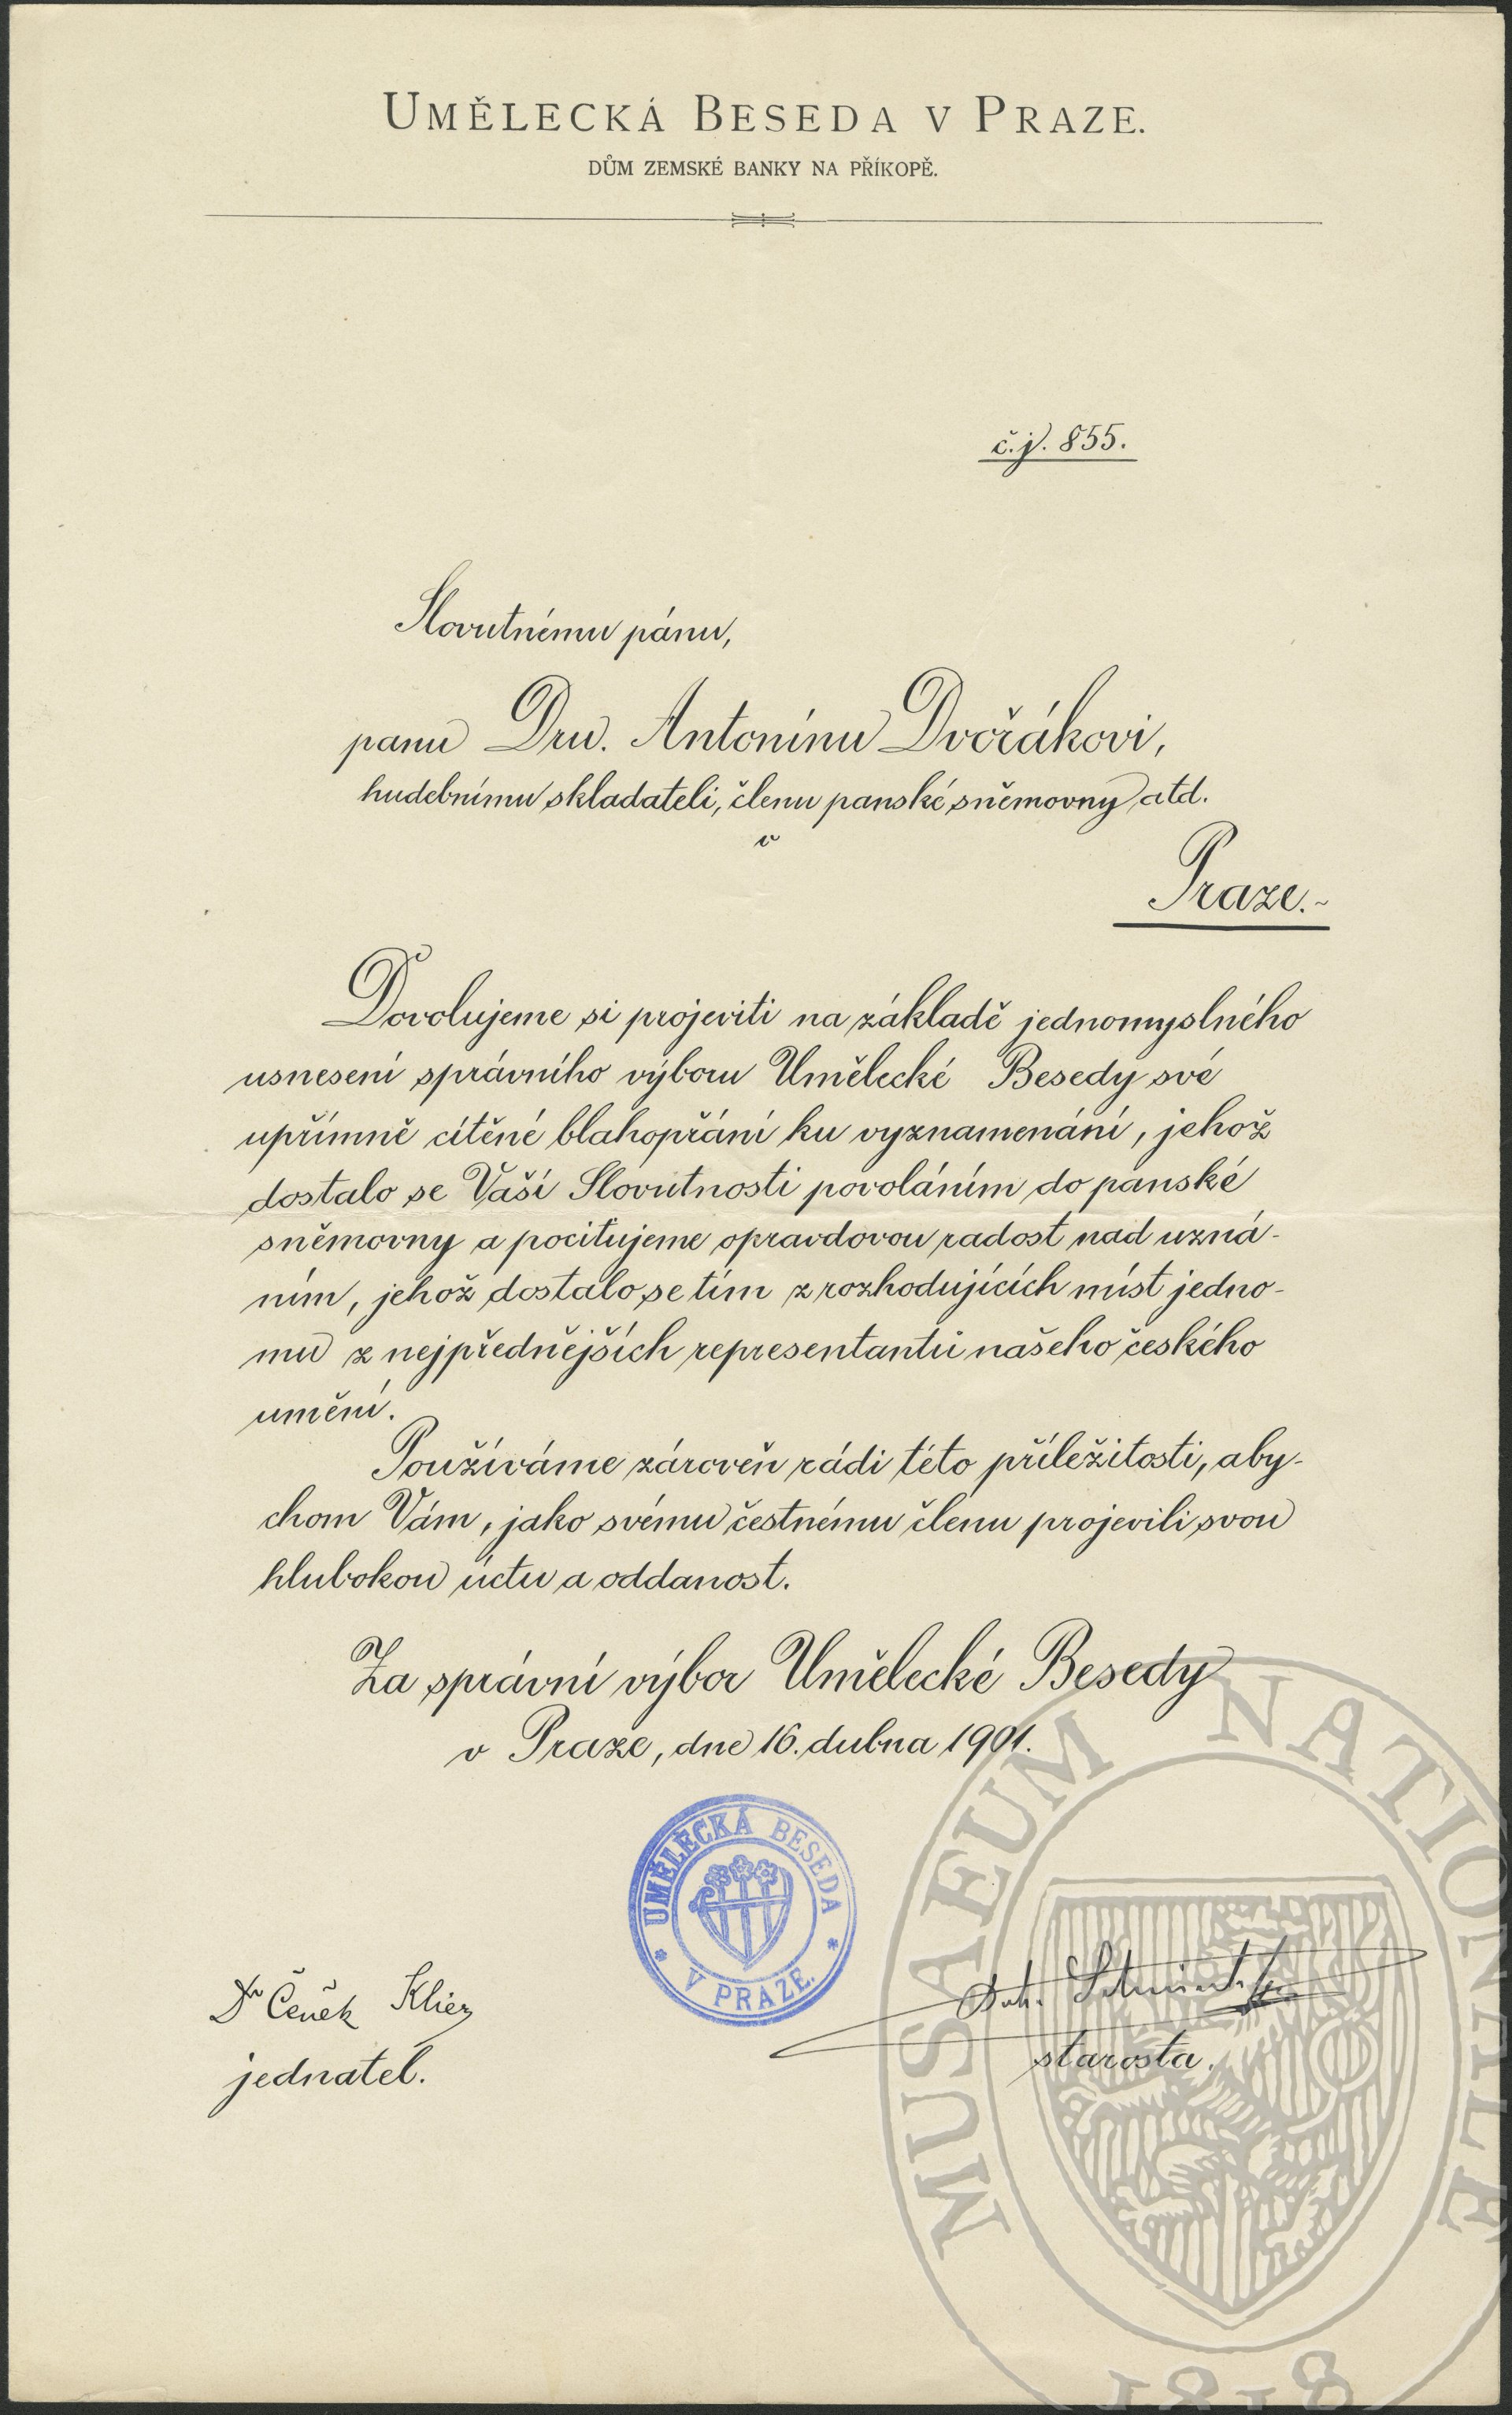 UMĚLECKÁ BESEDA V PRAZE.
DŮM ZEMSKÉ BANKY NA PŘÍKOPĚ.
č. j. 855.
Slovutnému pánu,
panu Dru. Antonínu Dvořákovi,
hudebnímu skladateli, členu panské sněmovny atd.
v
Praze.~
Dovolujeme si projeviti na základě jednomyslného
usnesení správního výboru Umělecké Besedy své
upřímně cítěné blahopřání ku vyznamenání, jehož
dostalo se Vaší Slovutnosti povoláním do panské
sněmovny a pociťujeme opravdovou radost nad uzná-
ním, jehož dostalo se tím z rozhodujících míst jedno-
mu z nejpřednějších representantů našeho českého
umění.
Používáme zároveň rádi této příležitosti, aby-
chom Vám, jako svému čestnému členu projevili svou
hlubokou úctu a oddanost.
Za správní výbor Umělecké Besedy
v Praze, dne 16. dubna 1901.
UMĚLECKÁ BESEDA
V PRAZE.
Dr Čeněk Klier
jednatel.
starosta.
MUSAEUM NATIONALE
1818